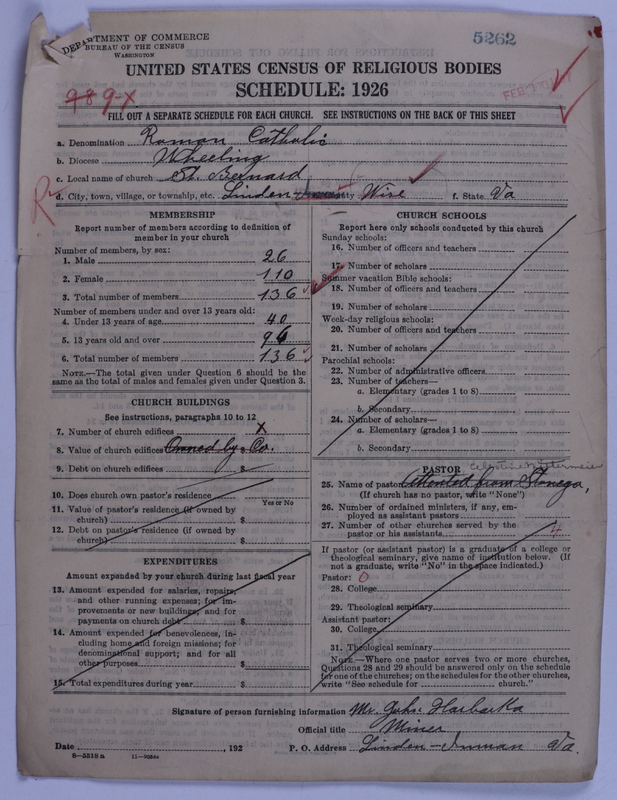 DEPARTMENT OF COMMERCE
BUREAU OF THE CENSUS
WASHINGTON
5262
UNITED STATES CENSUS OF RELIGIOUS BODIES
SCHEDULE: 1926
989-X
FILL OUT A SEPARATE SCHEDULE FOR EACH CHURCH. SEE INSTRUCTIONS ON THE BACK OF THIS SHEET
a. Denomination Roman Catholic
b. Diocese Wheeling
c. Local name of church St. Bernard
d. City, town, village, or township, etc. Linden Wise f. State Va
MEMBERSHIP
Report number of members according to definition of
member in your church
Number of members, by sex:
1. Male 26
2. Female 110
3. Total number of members 136
Number of members under and over 13 years old:
4. Under 13 years of age 40
5. 13 years old and over 96
6. Total number of members 136
NOTE.—The total given under Question 6 should be
same as the total of males and females given under Question 3.
CHURCH BUILDINGS
See instructions, paragraphs 10 to 12
7. Number of church edifices X
8. Value of church edifices Owned by Co.
9. Debt on church edifices $
10. Does church own pastor's residence
Yes or No
11. Value of pastor's residence (if owned by
church) $
12. Debt on pastor's residence (if owned by
church) $
EXPENDITURES
Amount expended by your church during last fiscal year
13. Amount expended for salaries, repairs,
and other running expenses; for im-
provements or new buildings; and for
payments on church debt $
14. Amount expended for benevolences, in-
cluding home and foreign missions; for
denominational support; and for all
other purposes $
15. Total expenditures during year $
CHURCH SCHOOLS
Report here only schools conducted by this church
Sunday schools:
16. Number of officers and teachers
17. Number of scholars
Summer vacation Bible schools:
18. Number of officers and teachers
19. Number of scholars
Week-day religious schools:
20. Number of officers and teachers
21. Number of scholars
Parochial schools:
22. Number of administrative officers
23. Number of teachers—
a. Elementary (grades 1 to 8)
b. Secondary
24. Number of scholars—
a. Elementary (grades 1 to 8)
b. Secondary
PASTOR
25. Name of pastor attended from Stonega,
(If church has no pastor, write "None")
26. Number of ordained ministers, if any, em-
ployed as assistant pastors
27. Number of other churches served by the
pastor or his assistants 4
If pastor (or assistant pastor) is a graduate of a college or
theological seminary, give name of institution below. (If
not a graduate, write "No" in the space indicated.)
Pastor: 0
28. College
29. Theological seminary
Assistant pastor:
30. College
31. Theological seminary
NOTE.—Where one pastor serves two or more churches,
Questions 28 and 29 should be answered only on the schedule
for one of the churches; on the schedules for the other churches,
write "See schedule for church."
Signature of person furnishing information Mr. John Harbarka
Official title Miner
Date , 192 P. O. Address Linden - Inman Va.
8-5318a 11-9084a